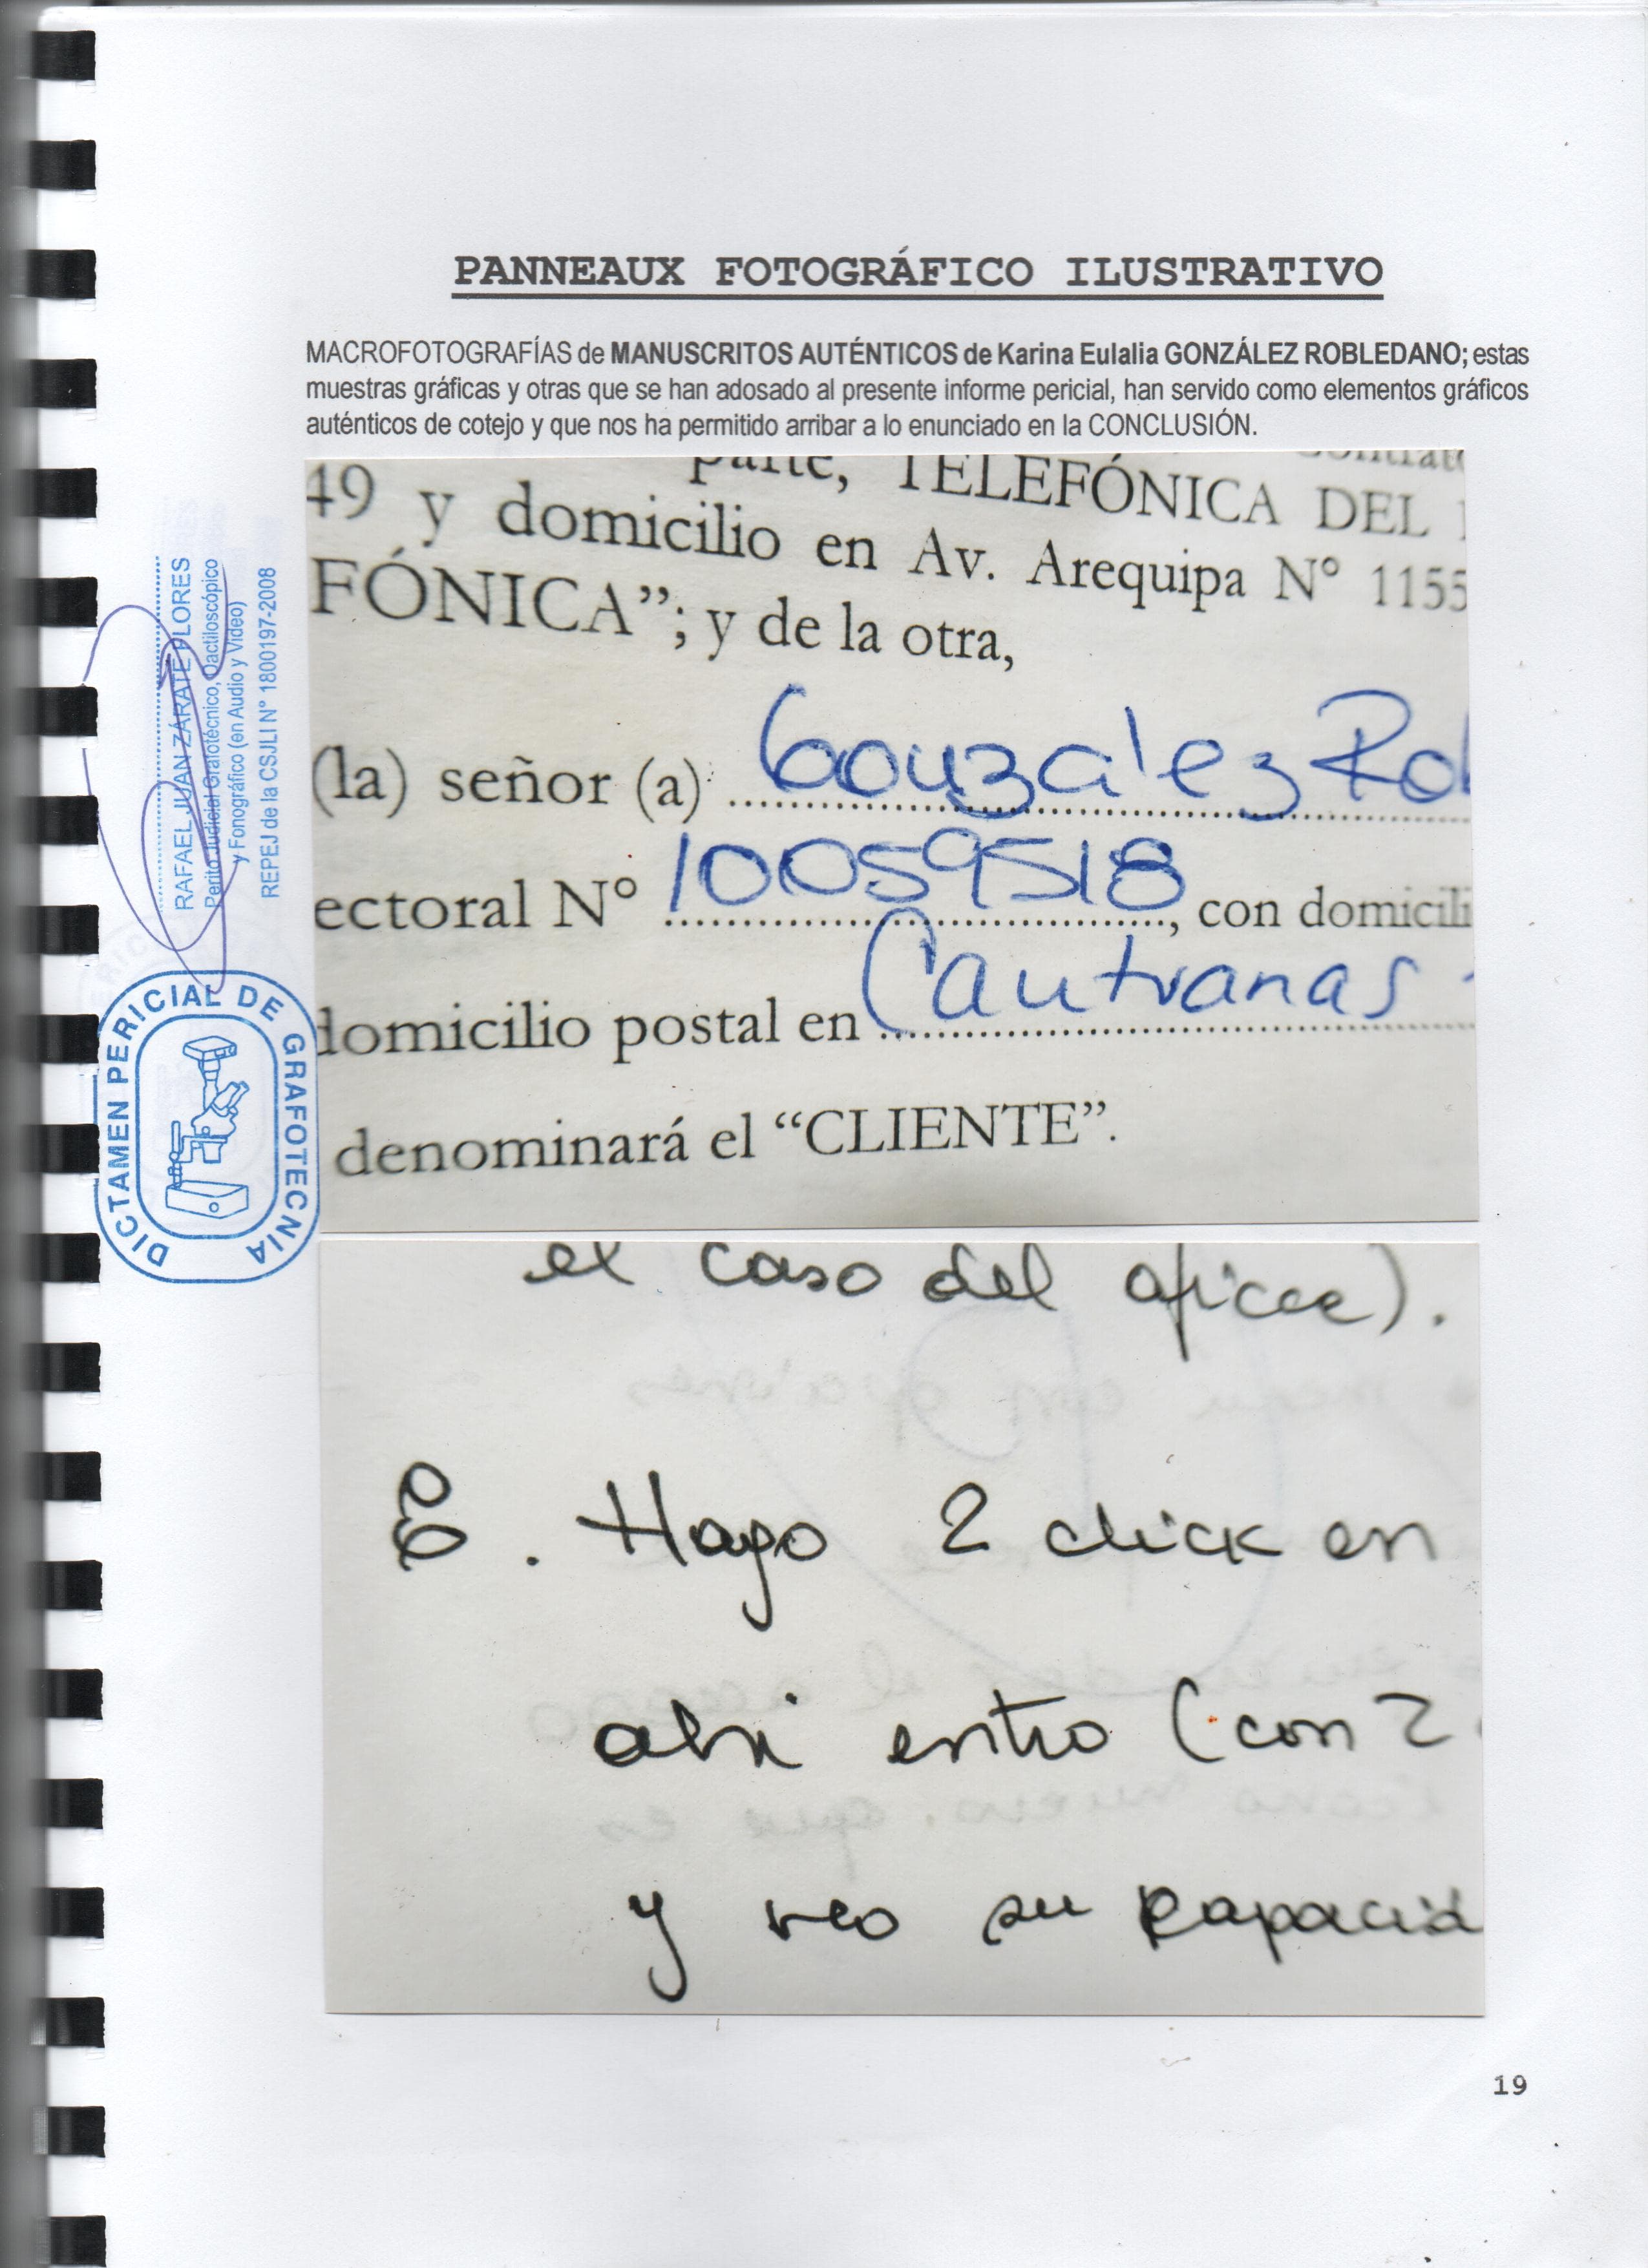 PANNEAUX FOTOGRÁFICO ILUSTRATIVO
MACROFOTOGRAFÍAS de MANUSCRITOS AUTÉNTICOS de Karina Eulalia GONZÁLEZ ROBLEDANO; estas
muestras gráficas y otras que se han adosado al presente informe pericial, han servido como elementos gráficos
auténticos de cotejo y que nos ha permitido arribar a lo enunciado en la CONCLUSIÓN.
parte, TELEFÓNICA DEL
49 y domicilio en Av. Arequipa N° 1155
FÓNICA”; y de la otra,
(la) señor (a) González Rob
ectoral N° 10059518, con domicili
domicilio postal en Cautranas
denominará el “CLIENTE”.
el caso del
8. Hago 2 click en
ahi entro (con 2
y veo su capacid
RAFAEL JUAN ZÁRATE FLORES
Perito Judicial Grafotécnico, Dactiloscópico
y Fonográfico (en Audio y Video)
REPEJ de la CSJLI N° 1800197-2008
DICTAMEN PERICIAL DE GRAFOTECNIA
19